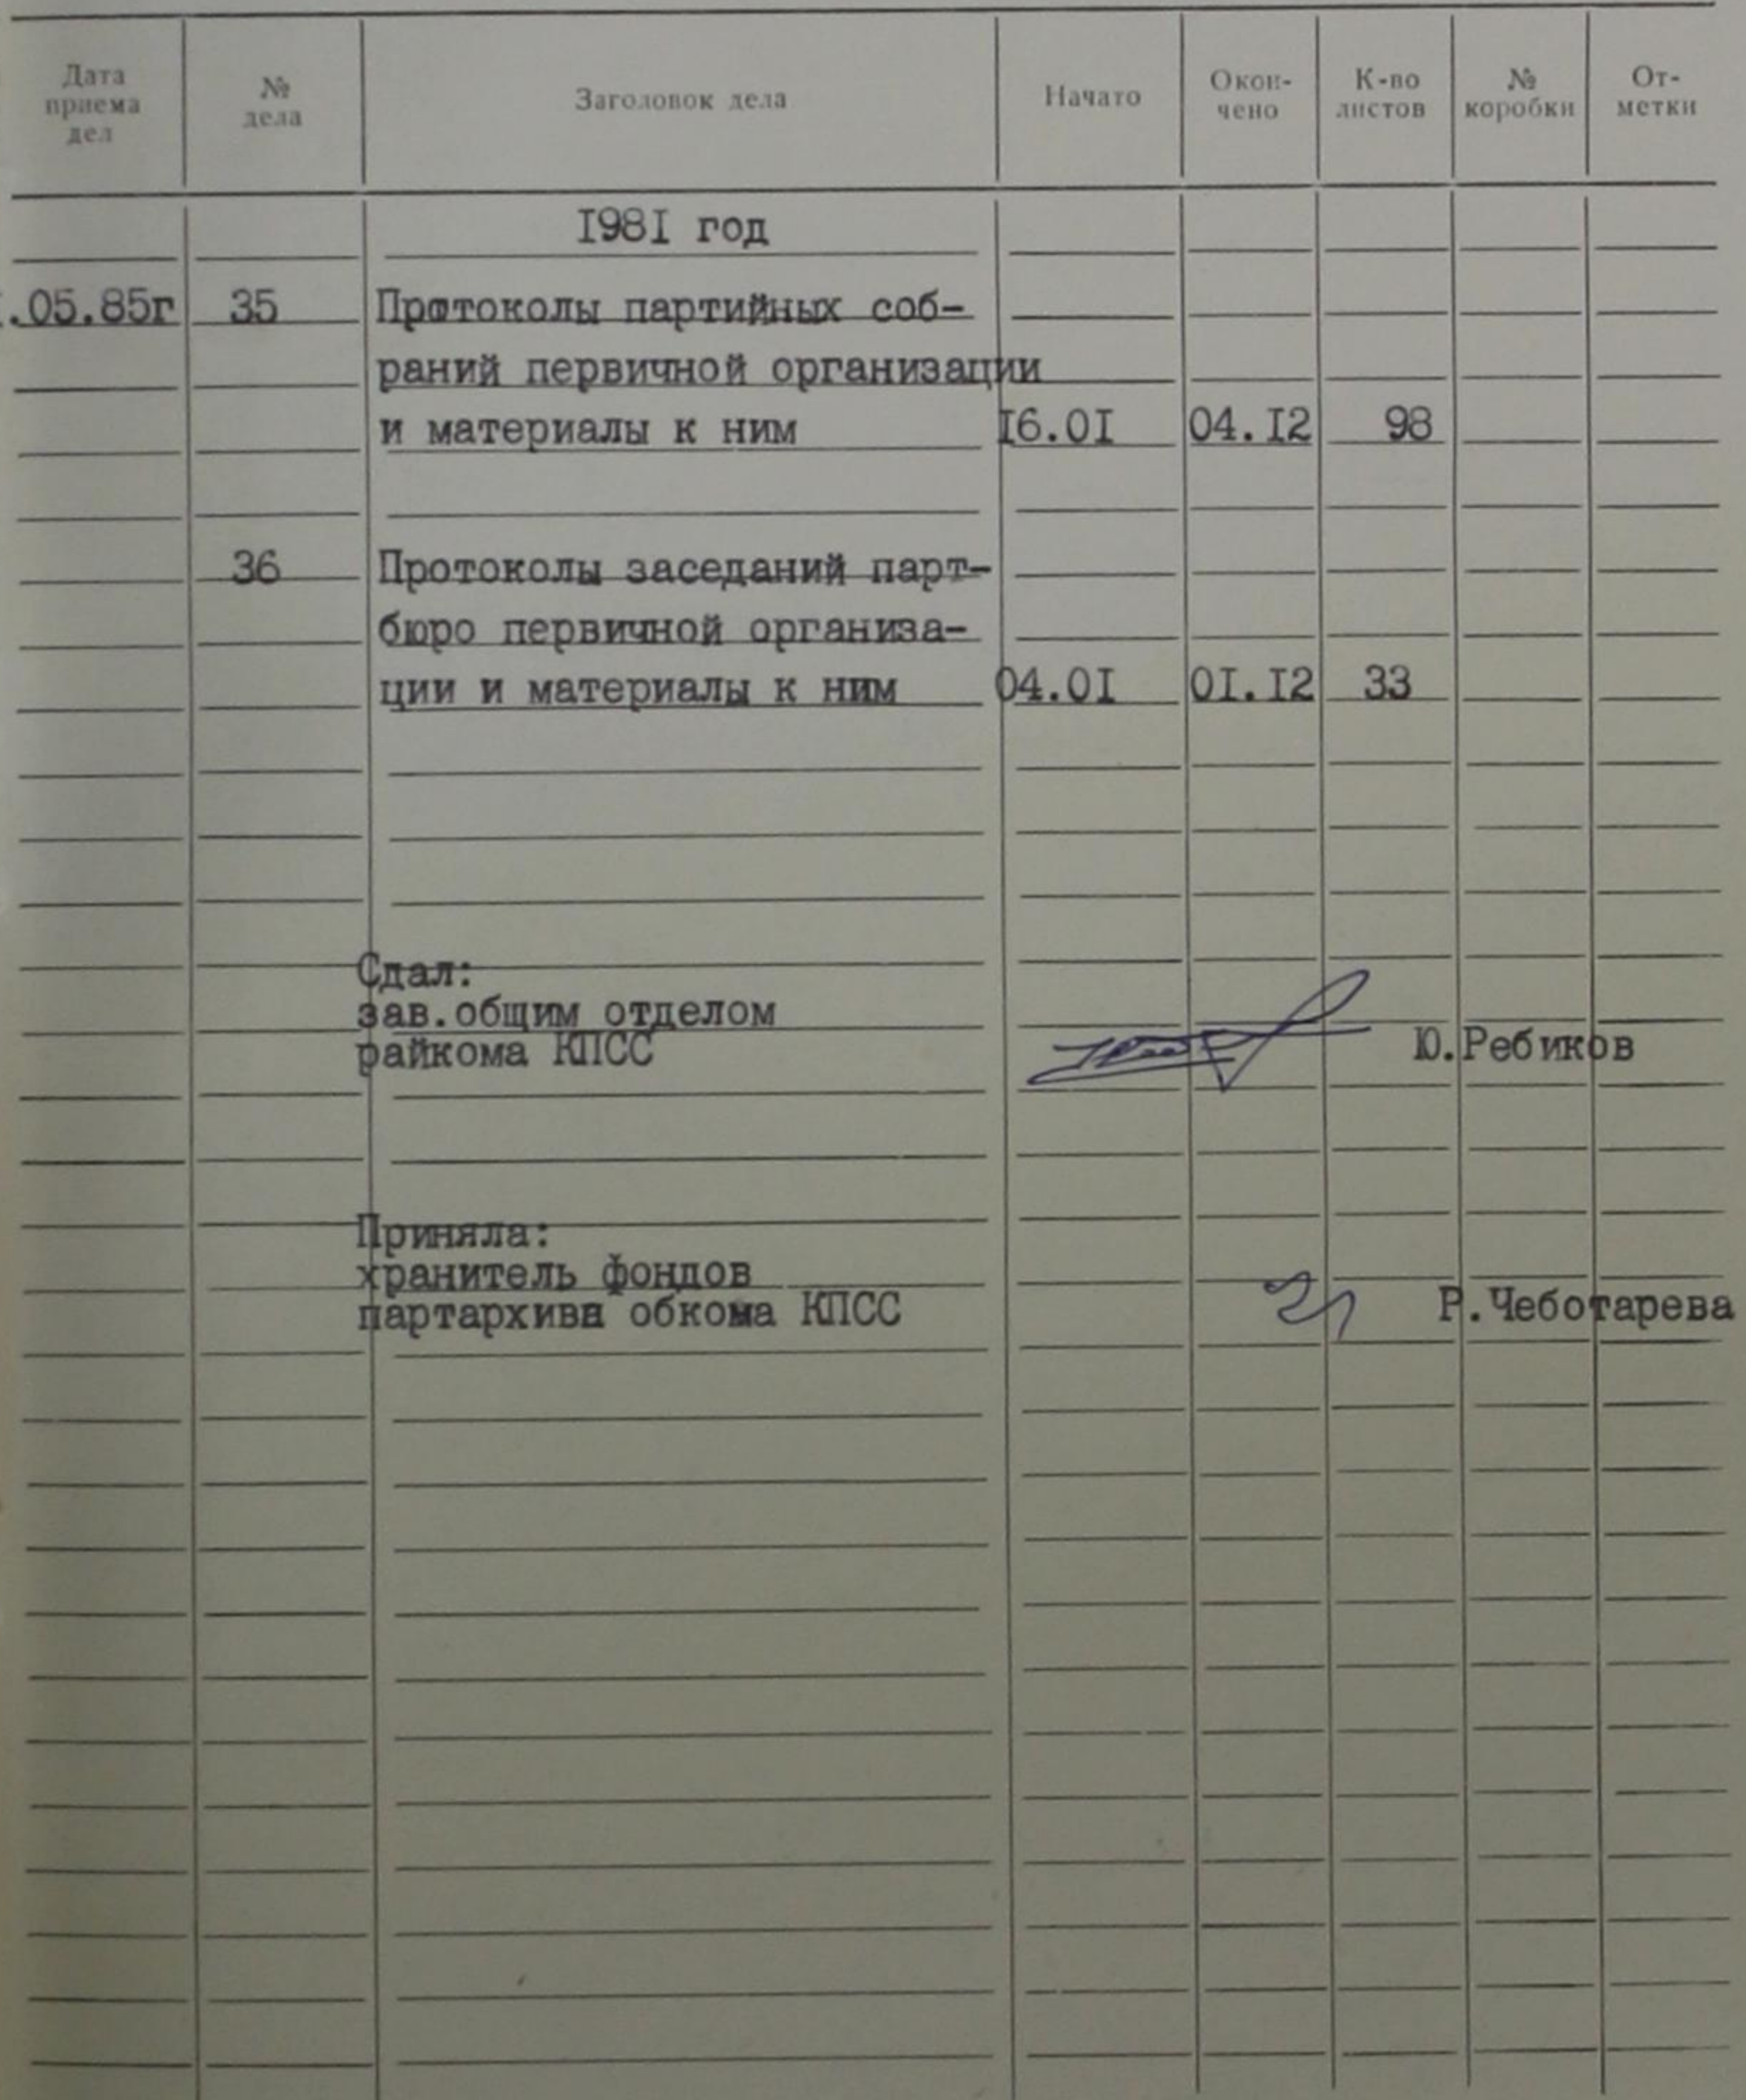 Дата приема дел
№ дела
Заголовок дела
Начато
Окон-чено
К-во листов
№ коробки
От-метки
I98I год
.05.85г 35 Протоколы партийных соб-
раний первичной организации
и материалы к ним I6.0I 04.I2 98
36 Протоколы заседаний парт-
бюро первичной организа-
ции и материалы к ним 04.0I 0I.I2 33
Сдал:
зав.общим отделом
райкома КПСС Ю.Ребиков
Приняла:
хранитель фондов
партархива обкома КПСС Р.Чеботарева